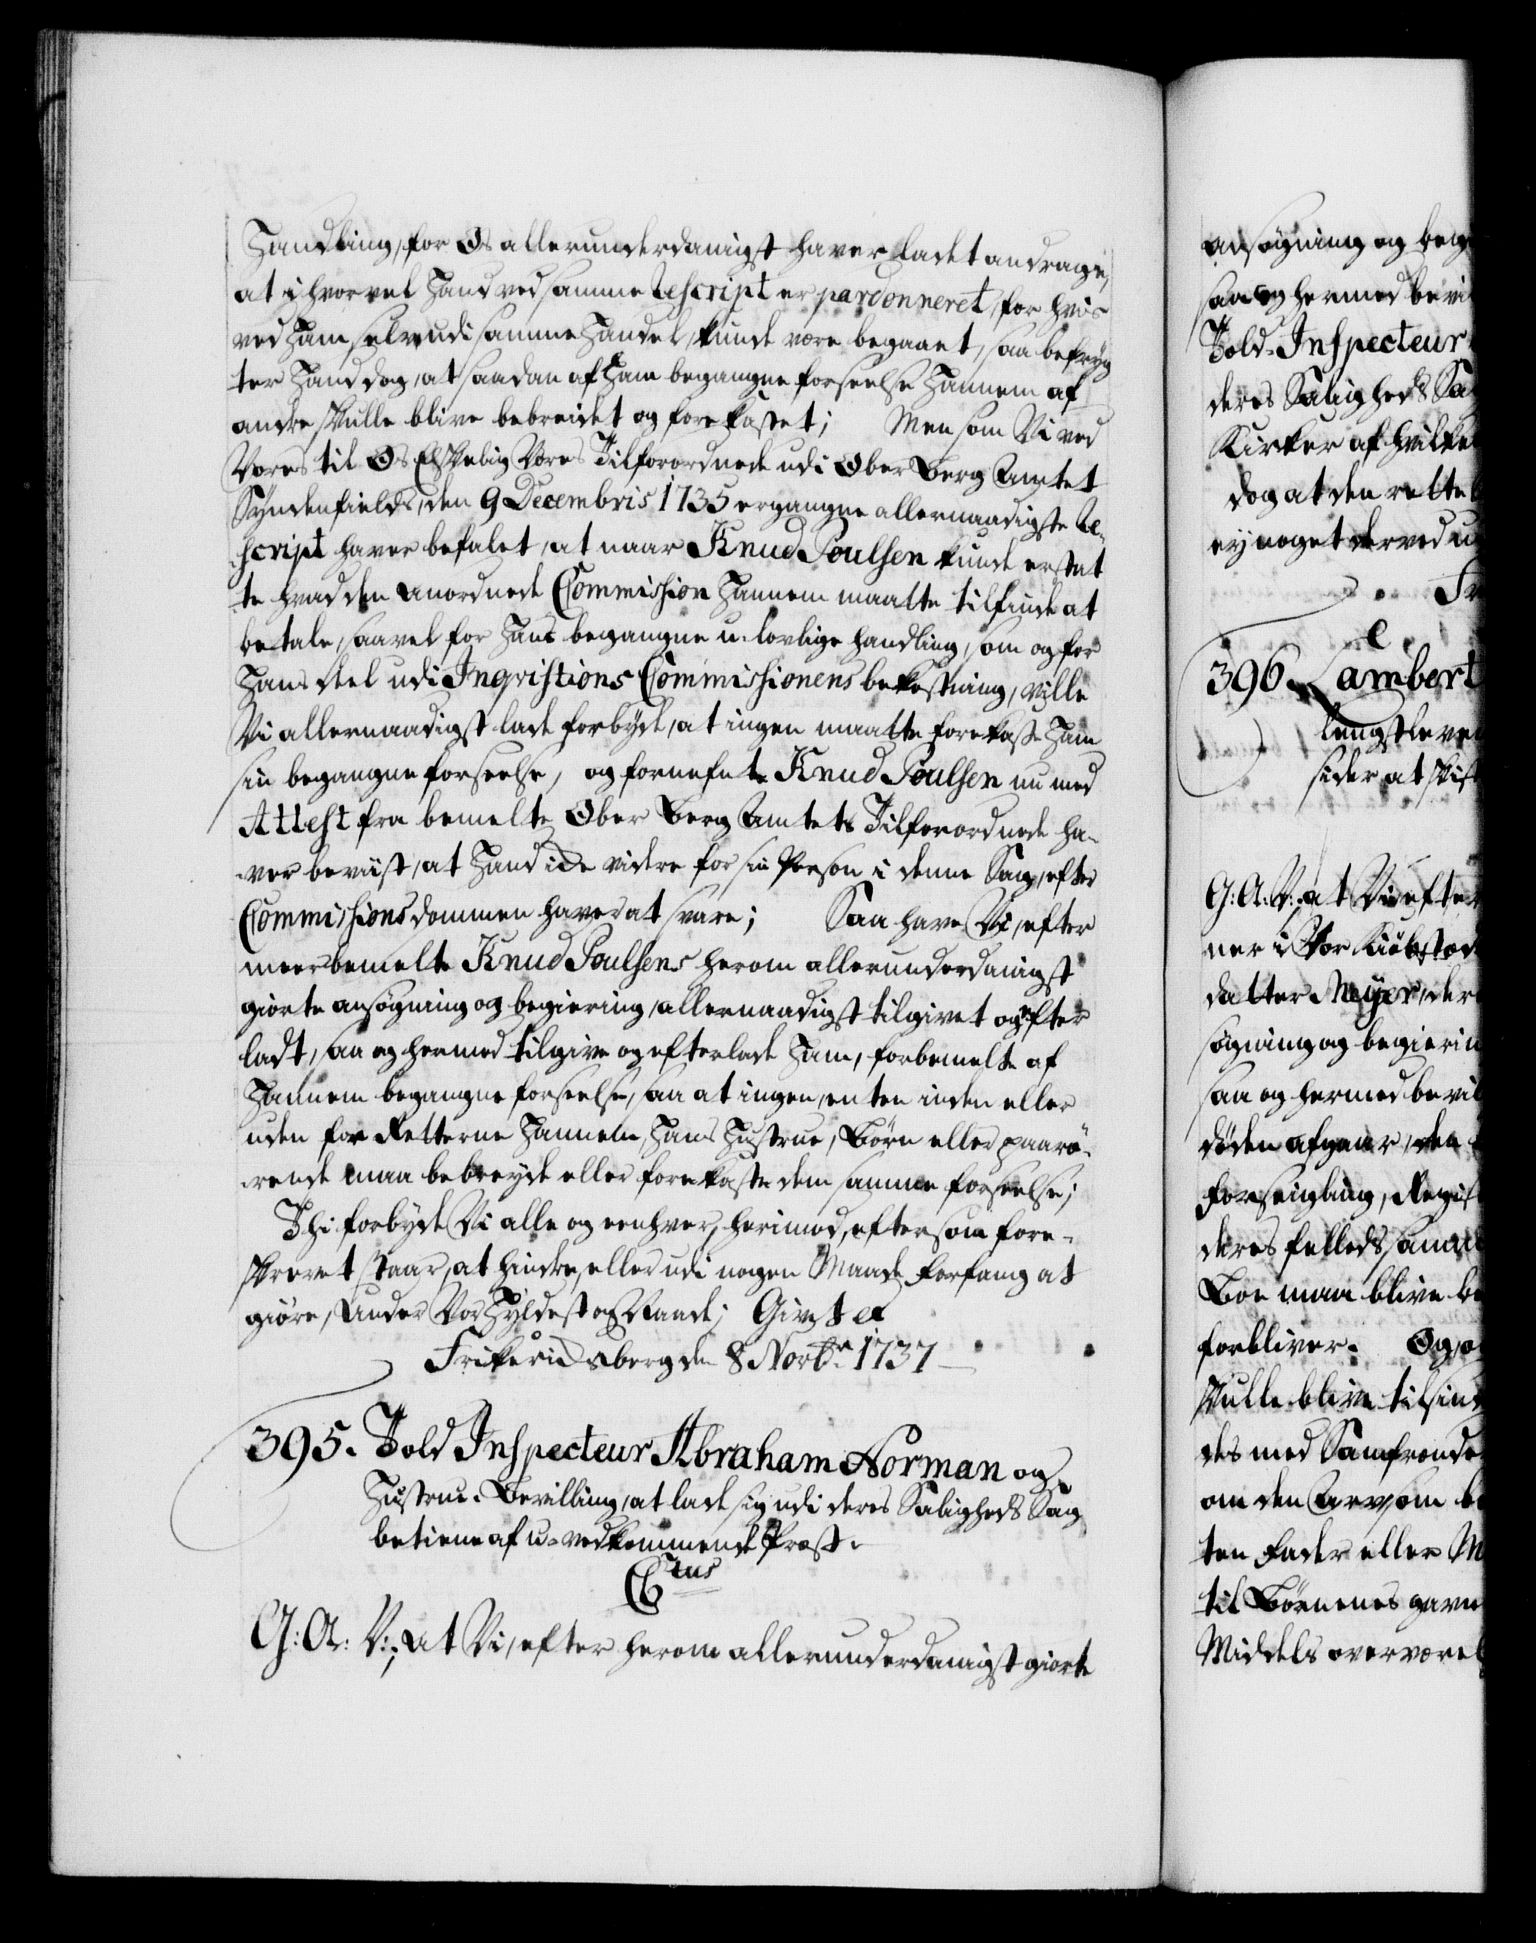 Handling, for Os allerunderdanigst haver ladet andrage,
at ihvorvel Hand ved samme Rescript er pardonneret, for hvis
ved Ham selv udi samme Handel, kunde være begaaet, saa befryg
ter Hand dog, at saadan af Ham begangne forseelse Hannem af
andre skulle blive bebreidet og forekastet; Men som Vi ved
Vores til Os Elskelig Vores Tilforordnede udi Ober Berg Amtet
Syndenfields, den 9 Decembris 1735 ergangne allernaadigste Re-
script haver befalet, at naar Knud Poulsen kunde erstat
te hvad den anordnede Commission Hannem maatte tilfinde at
betale, saavel for Hans begangne u-lovlige handling, som og for
Hans deel udi Inqvistions Commissionens bekostning, ville
Vi allernaadigst lade forbyde, at ingen maatte forekaste Ham
sin begangne forseelse, og fornefnte Knud Poulsen nu med
Attest fra bemelte Ober Berg Amtets Tilforordnede ha-
ver beviist, at Hand icke videre for sin Person i denne Sag, efter
Commissions dommen haver at svare; Saa have Vi, efter
meerbemelte Knud Poulsens herom allerunderdanigst
giorte ansøgning og begiering, allernaadigst tilgivet og efter
ladt, saa og hermed tilgive og efterlade Ham, forbemelte af
Hannem begangne forseelse, saa at ingen, enten inden eller
uden for Retterne Hannem, Hans Hustrue, Børn eller paarø-
rende maa bebreyde eller forekaste dem samme forseelse;
Thi forbyde Vi alle og eenhver, herimod, eftersom fore-
skrevet staar, at hindre, eller udi nogen Maade forfang at
giøre, Under Vor Hyldest og Naade; Givet et
Friderichsberg den 8 Novbr. 1737
395. Told Inspecteur Abraham Norman og
Hustrue Bevilling, at lade sig udi deres Saligheds Sag
betiene af u-vedkommende Præst.
Ctus
G: A: V:, at Vi, efter herom allerunderdanigst giorte
ansøgning og beg
saa og hermed bevi
Told-Inspecteur
deres Saligheds Sa
Kirker af hvilke
dog at den rette
ej noget derved u
Fr
e
396. Lambert
lengstleve
sider at skif
G: A: V:, at Vi efter
ner i Vor Kiøbsted
datter Meyer, der
søgning og begierin
saa og hermed bevil
døden afgaar, den
forseigling, Regis
deres felleds, sam
Boe maa blive be
forbliver. Og,
skulle blive tilsin
des med Samfrende
om den Arv, som
ten Fader eller M
til Børnenes gavn
Middels overværel